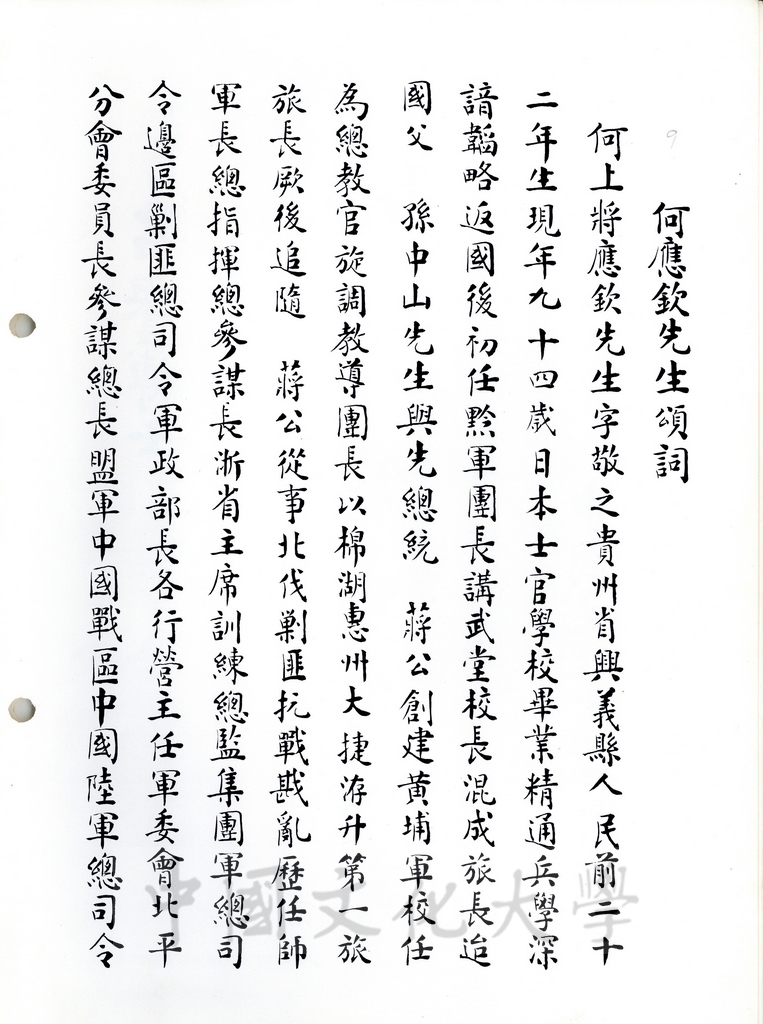 9
何應欽先生頌詞
何上將應欽先生字敬之貴州省興義縣人民前二十
二年生現年九十四歲日本士官學校畢業精通兵學深
諳韜略返國後初任黔軍團長講武堂校長混成旅長迨
國父 孫中山先生與先總統 蔣公創建黃埔軍校任
為總教官旋調教導團長以棉湖惠州大捷洊升第一旅
旅長厥後追隨 蔣公從事北伐剿匪抗戰戡亂歷任師
軍長總指揮總參謀長浙省主席訓練總監集團軍總司
令邊區剿匪總司令軍政部長各行營主任軍委會北平
分會委員長參謀總長盟軍中國戰區中國陸軍總司令
中國文化大學